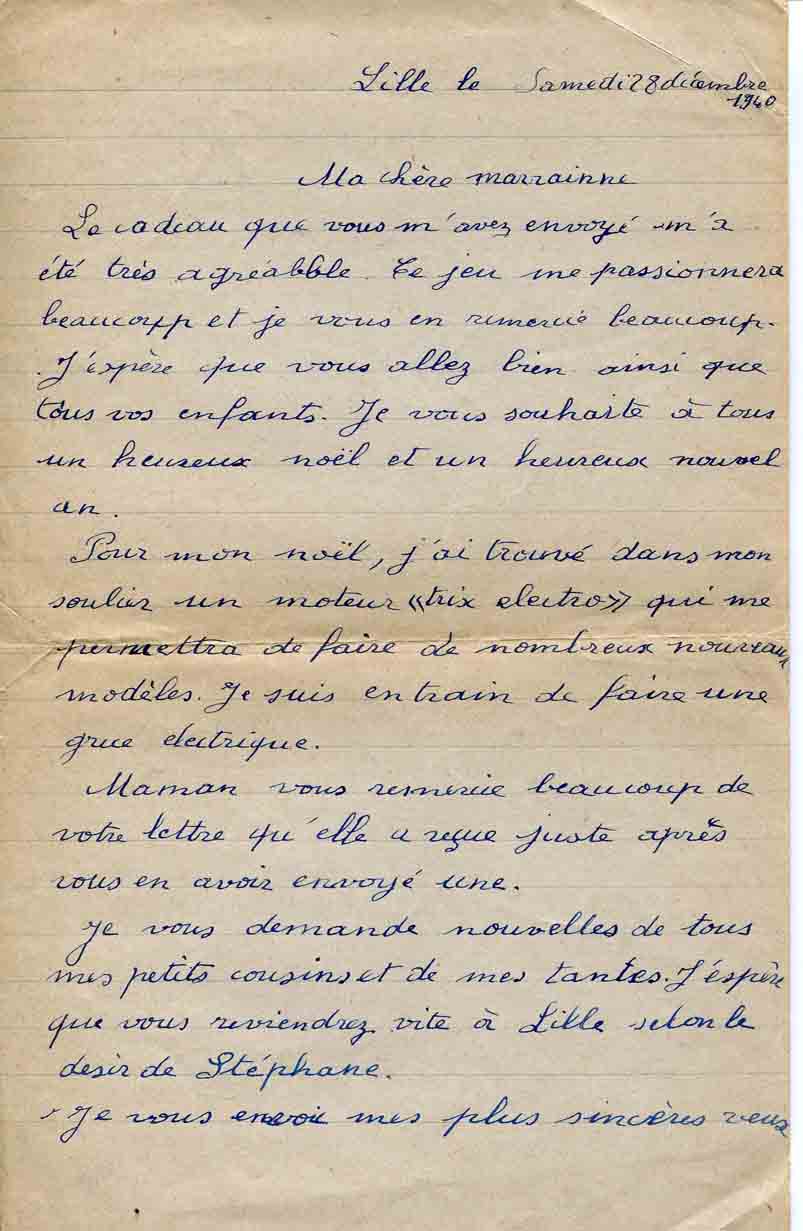 Lille le Samedi 28 décembre
1940
Ma chère marrainne
Le cadeau que vous m'avez envoyé m'a
été très agréabble. Ce jeu me passionnera
beaucoupp et je vous en remercie beaucoup.
J'espère que vous allez bien ainsi que
tous vos enfants. Je vous souhaite à tous
un heureux noël et un heureux nouvel
an.
Pour mon noël, j'ai trouvé dans mon
soulier un moteur «trix electro» qui me
permettra de faire de nombreux nouveaux
modèles. Je suis en train de faire une
grue electrique.
Maman vous remercie beaucoup de
votre lettre qu'elle a reçue juste après
vous en avoir envoyé une.
Je vous demande nouvelles de tous
mes petits cousins et de mes tantes. J'espère
que vous reviendrez vite à Lille selon le
desir de Stéphane.
Je vous envoie mes plus sincères veux